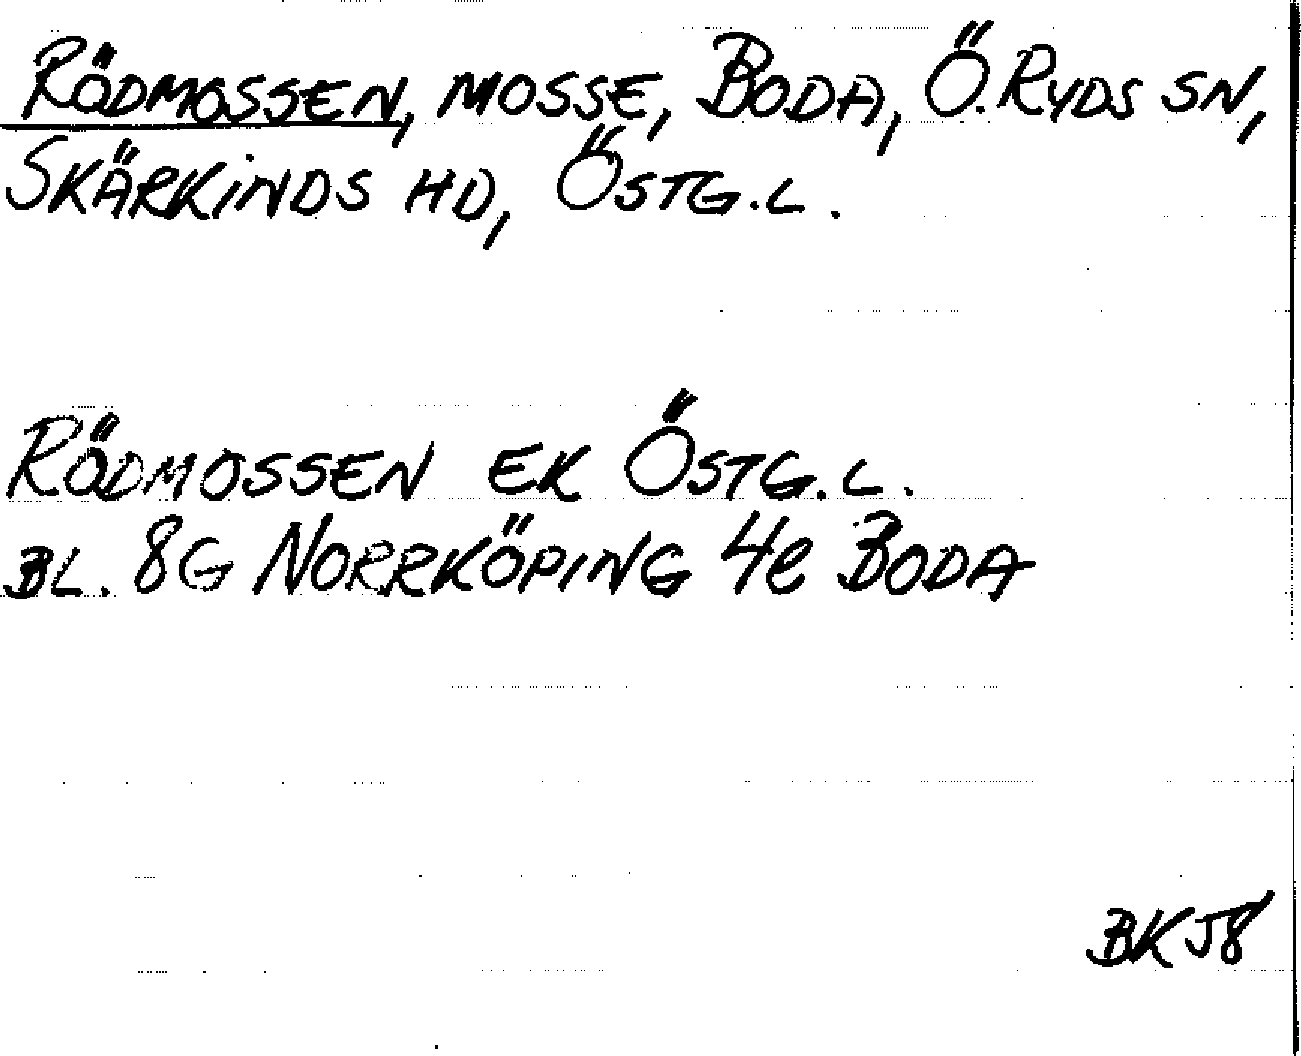 RÖDMOSSEN, MOSSE, BODA, Ö. RYDS SN,
SKÄRKINDS HD, ÖSTG.L.
RÖDMOSSEN EK ÖSTG.L.
BL. 8G NORRKÖPING 4e BODA
BK 58